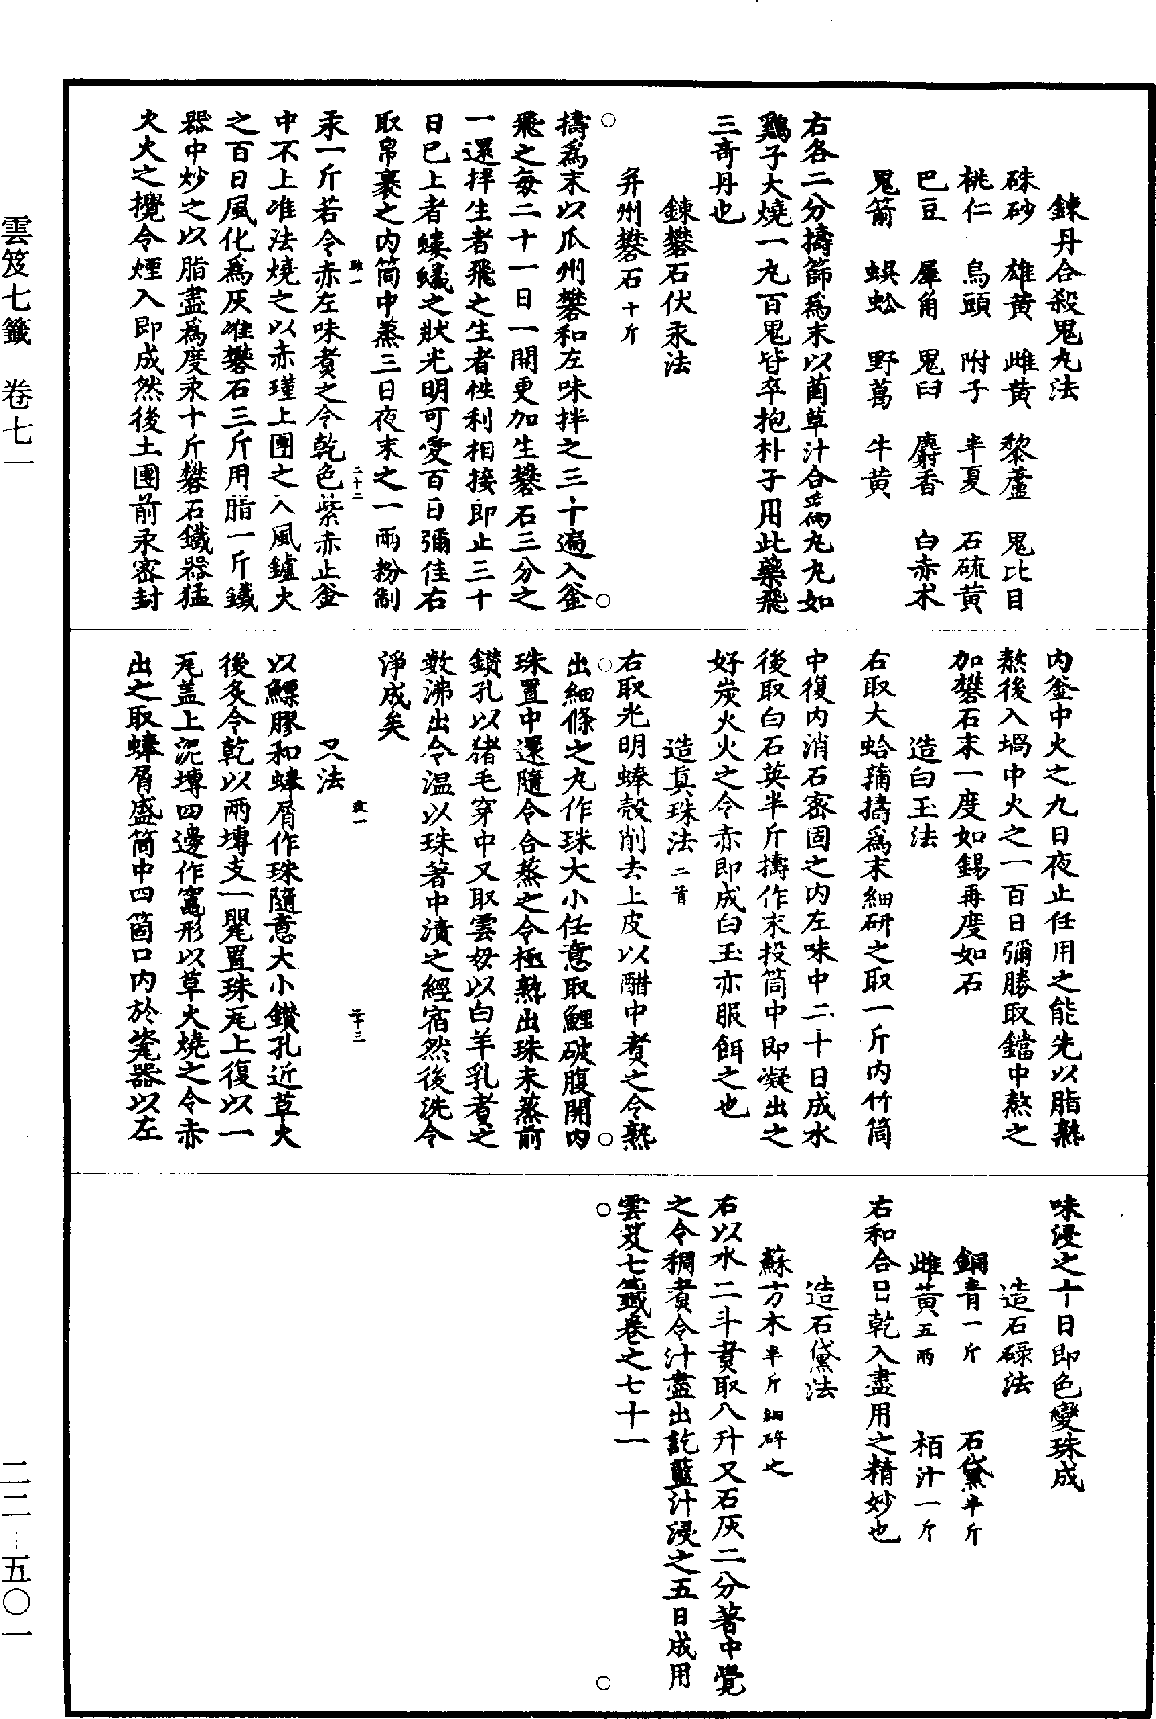 鍊丹合殺鬼丸法
硃砂　雄黃　雌黃　黎蘆　鬼比目
桃仁　烏頭　附子　半夏　石硫黃
巴豆　犀角　鬼臼　麝香　白赤术
鬼箭　蜈蚣　野葛　牛黃
右各二分擣篩為末以茵草汁合丸丸如
鷄子大燒一丸百鬼皆卒抱朴子用此藥飛
三奇丹也
鍊礬石伏汞法
并州礬石十斤
擣為末以瓜州礬和左味拌之三十遍入釜
飛之每二十一日一開更加生礬石三分之
一還拌生者飛之生者性利相接即止三十
日已上者螻蟻之狀光明可愛百日彌佳右
取帛裹之內筒中蒸三日夜末之一兩粉制
汞一斤若令赤左味煑之令乾色紫赤止釜
中不上唯法燒之以赤瑾土團之入風鑪火
之百日風化為灰唯礬石三斤用脂一斤鐵
器中炒之以脂盡為度汞十斤礬石鐵器猛
火火之攪令煙入即成然後土團前汞密封
內釜中火之九日夜止任用之能先以脂熬
熬後入堝中火之一百日彌勝取鐺中熬之
加礬石末一度如錫再度如石
造白玉法
右取大蛤蒲擣為末細研之取一斤內竹筒
中復內消石密固之內左味中二十日成水
後取白石英半斤擣作末投筒中即凝出之
好炭火火之令赤即成白玉亦服餌之也
造真珠法二首
右取光明蜯殼削去上皮以醋中煑之令熟
出細條之丸作珠大小任意取鯉破腹開內
珠置中還隨令合蒸之令極熟出珠未蒸前
鑽孔以猪毛穿中又取雲母以白羊乳煑之
數沸出令温以珠著中漬之經宿然後洗令
淨成矣
又法
以鰾膠和蜯屑作珠隨意大小鑽孔近草火
後炙令乾以兩塼支一甖置珠瓦上復以一
瓦蓋上泥塼四邊作竈形以草火燒之令赤
出之取蜯屑盛筒中四箇口內於瓷器以左
味浸之十日即色變珠成
造石碌法
銅青一斤　石黛半斤
雌黃五兩　栢汁一斤
右和合日乾入盡用之精妙也
造石黛法
蘇方木半斤細碎之
右以水二斗煑取八升又石灰二分著中覺
之令稠煑令汁盡出訖藍汁浸之五日成用
雲笈七籤卷之七十一
雲笈七籤　卷七一
二二–五〇一